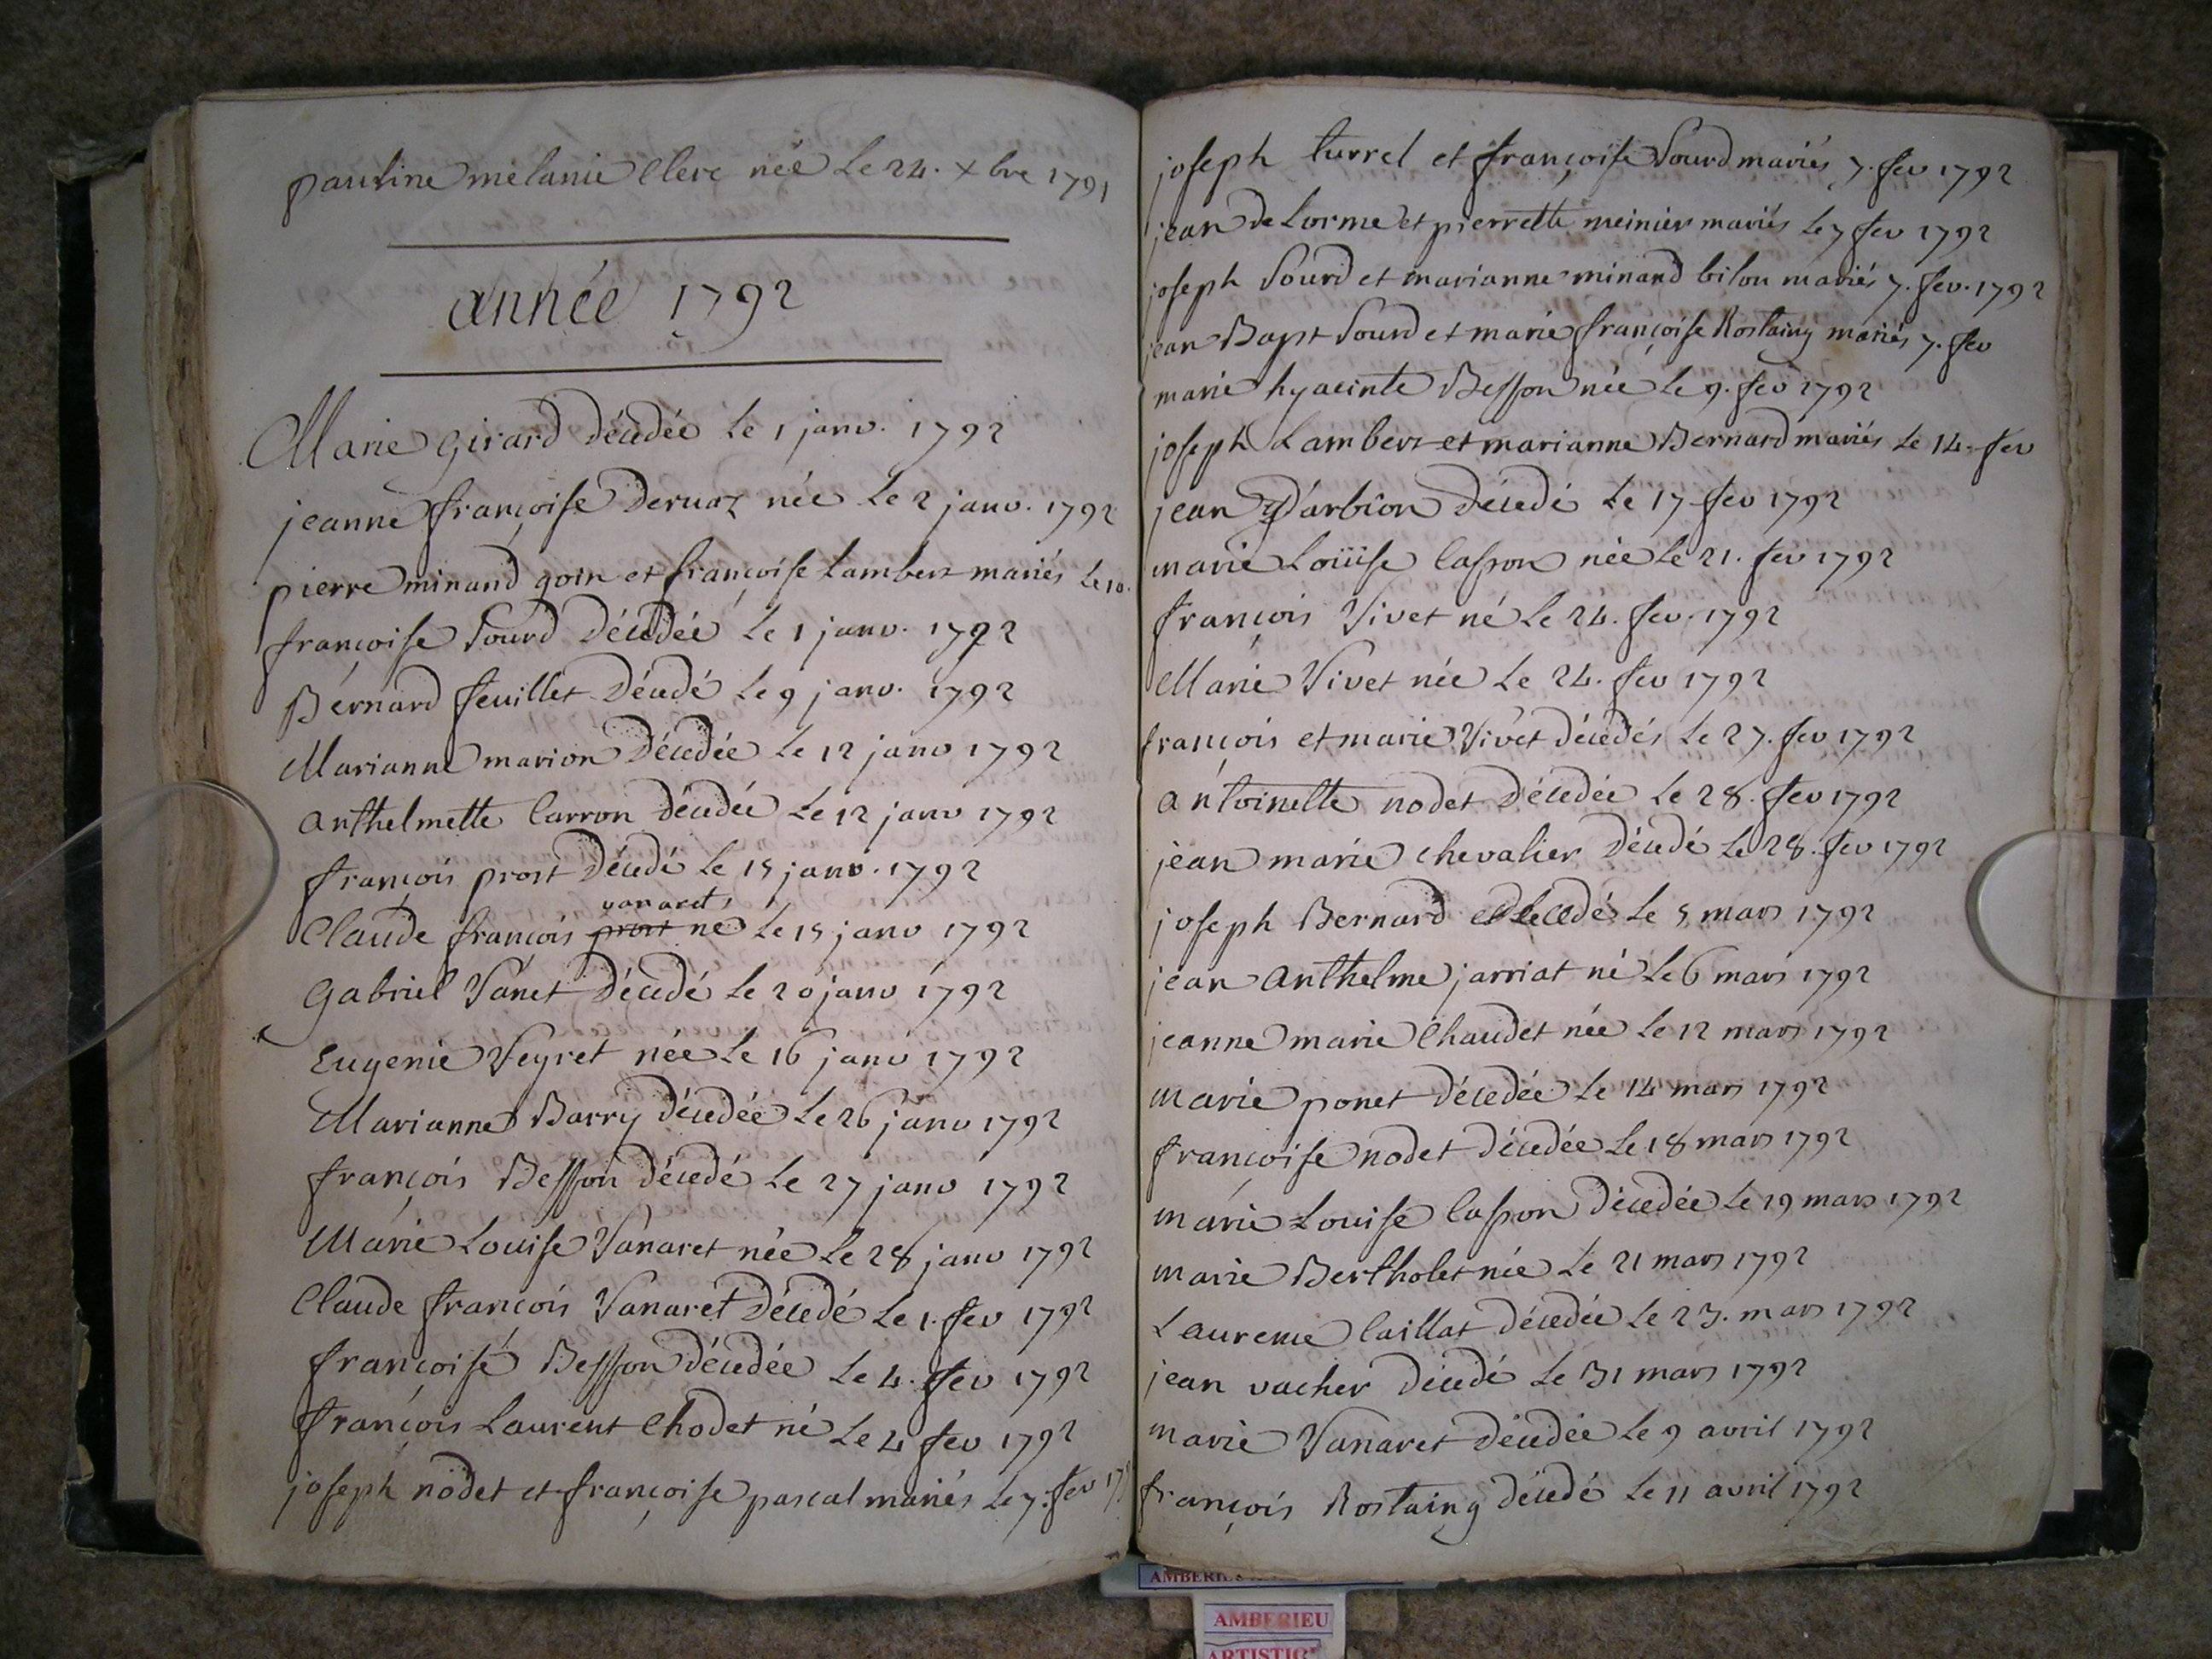 pauline mélanie Clerc née Le 24. xbre 1791
année 1792
Marie girard décédée Le 1 janv. 1792
jeanne françoise Deruaz née Le 2 janv. 1792
pierre minand goin et françoise Lambert mariés Le 10.
françoise Sourd décédée Le 1 janv. 1792
Bernard feuillet décédé Le 9 janv. 1792
Marianne marion décédée Le 12 janv 1792
anthelmette Carron décédée Le 12 janv 1792
françois prost décédé Le 15 janv. 1792
vanaret
Claude françois prost né Le 15 janv 1792
Gabriel Vanet décédé Le 20 janv 1792
Eugenie Veyret née Le 16 janv 1792
Marianne Barry décédée Le 26 janv 1792
françois Besson décédé Le 27 janv 1792
Marie Louise Vanaret née Le 28 janv 1792
Claude françois Vanaret décédé Le 1. fev 1792
françoise Besson décédée Le 4. fev 1792
françois Laurent Chodet né Le 4 fev 1792
joseph nodet et françoise pascal mariés Le 7. fev
joseph turrel et françoise Sourd mariés 7. fev 1792
jean de Lorme et pierrette meinier mariés Le 7 fev 1792
joseph Sourd et marianne minand bilon mariés 7. fev. 1792
jean Bapt Sourd et marie françoise Rostaing mariés 7. fev
marie hyacinte Besson née Le 9. fev 1792
joseph Lambert et marianne Bernard mariés Le 14. fev
jean D'arbion décédé Le 17 fev 1792
marie Loüise Casson née Le 21. fev 1792
françois Vivet né Le 24. fev. 1792
Marie Vivet née Le 24. fev 1792
françois et marie Vivet décédés Le 27. fev 1792
antoinette nodet décédée Le 28. fev 1792
jean marie chevalier décédé Le 28. fev 1792
joseph Bernard décédé Le 5 mars 1792
jean anthelme jarriat né Le 6 mars 1792
jeanne marie Chaudet née Le 12 mars 1792
marie ponet décédée Le 14 mars 1792
françoise nodet décédée Le 18 mars 1792
marie Louise Casson décédée Le 19 mars 1792
marie Bertholet née Le 21 mars 1792
Laurence Caillat décédée Le 23. mars 1792
jean vacher décédé Le 31 mars 1792
marie Vanaret décédée Le 9 avril 1792
françois Rostaing décédé Le 11 avril 1792
AMBERIEU